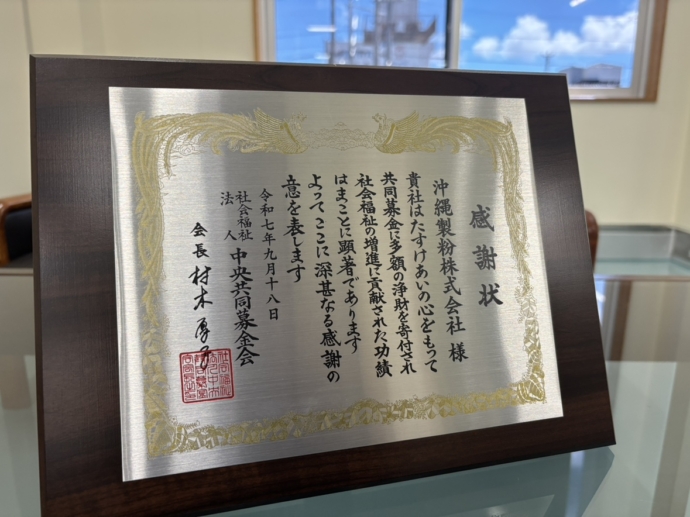 感謝状
沖縄製粉株式会社 様
貴社はたすけあいの心をもって
共同募金に多額の浄財を寄付され
社会福祉の増進に貢献された功績
はまことに顕著であります
よってここに深甚なる感謝の
意を表します
令和七年九月十八日
社会福祉法人 中央共同募金会
会長 村木厚子